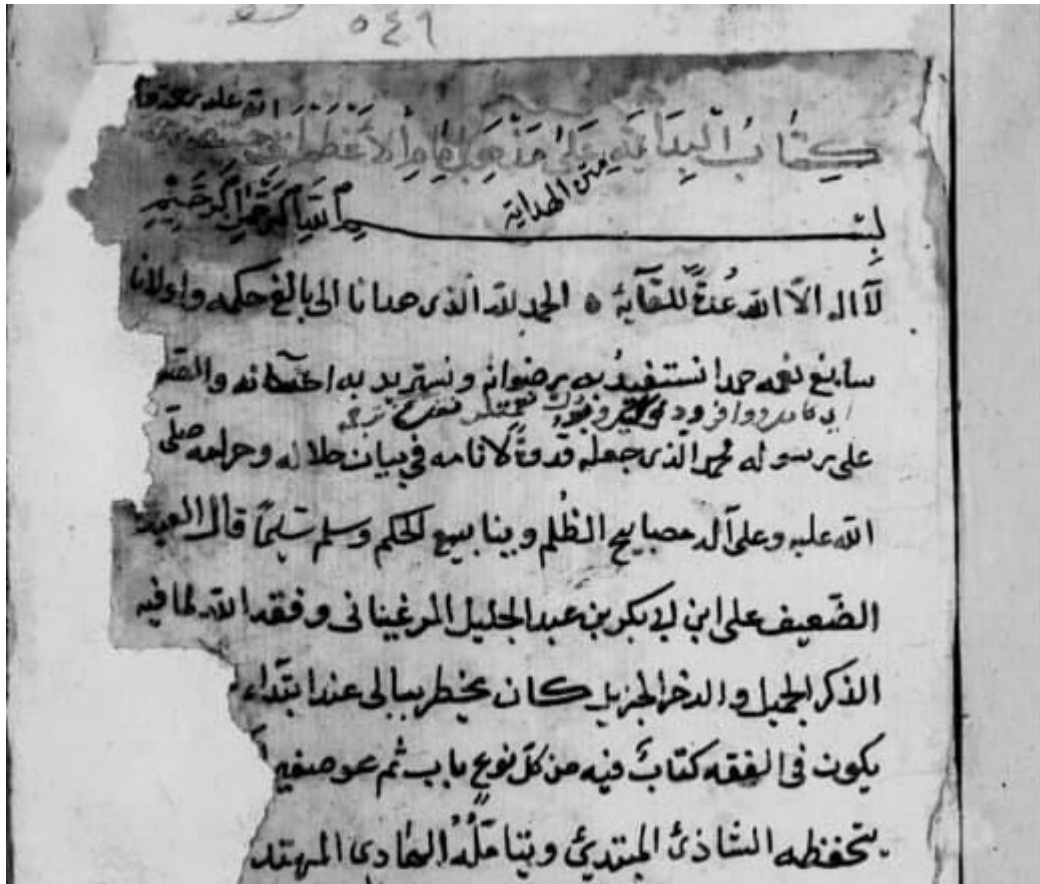 ٥٤٦
كِتَابُ الْبِدَايَةِ عَلَى مَذْهَبِ الْإِمَامِ الْأَعْظَمِ
متن الهداية
بِسْمِ اللّٰهِ الرَّحْمٰنِ الرَّحِيمِ
لَا اله الّا الله عُدّةٌ للقآئه ٥ الحمد لله الذى هدانا الى بالغ حكمه واولانا
سابغ نعمه حمدا نستفيدُ به رضوانه ونستزيد به احسانه والصلٰ
على رسوله محمد الّذى جعله قدوةً لانامه فى بيان حلاله وحرامه صلّى
الله عليه وعلى آله مصابيح الظُلم وينابيع الحكم وسلم تسليمًا قال العبد
الضّعيف على ابن ابى بكر بن عبد الجليل المرغينانى وفقه الله لما فيه
الذكر الجميل والدخر الجزيل كان يخطر ببالى عند ابتداء
يكون فى الفقه كتابٌ فيه من كلّ نوعٍ باب ثم هو صغير
يتحفظه الشّاذىُ المبتدىُ ويتامّلُهُ الهادى المهتد